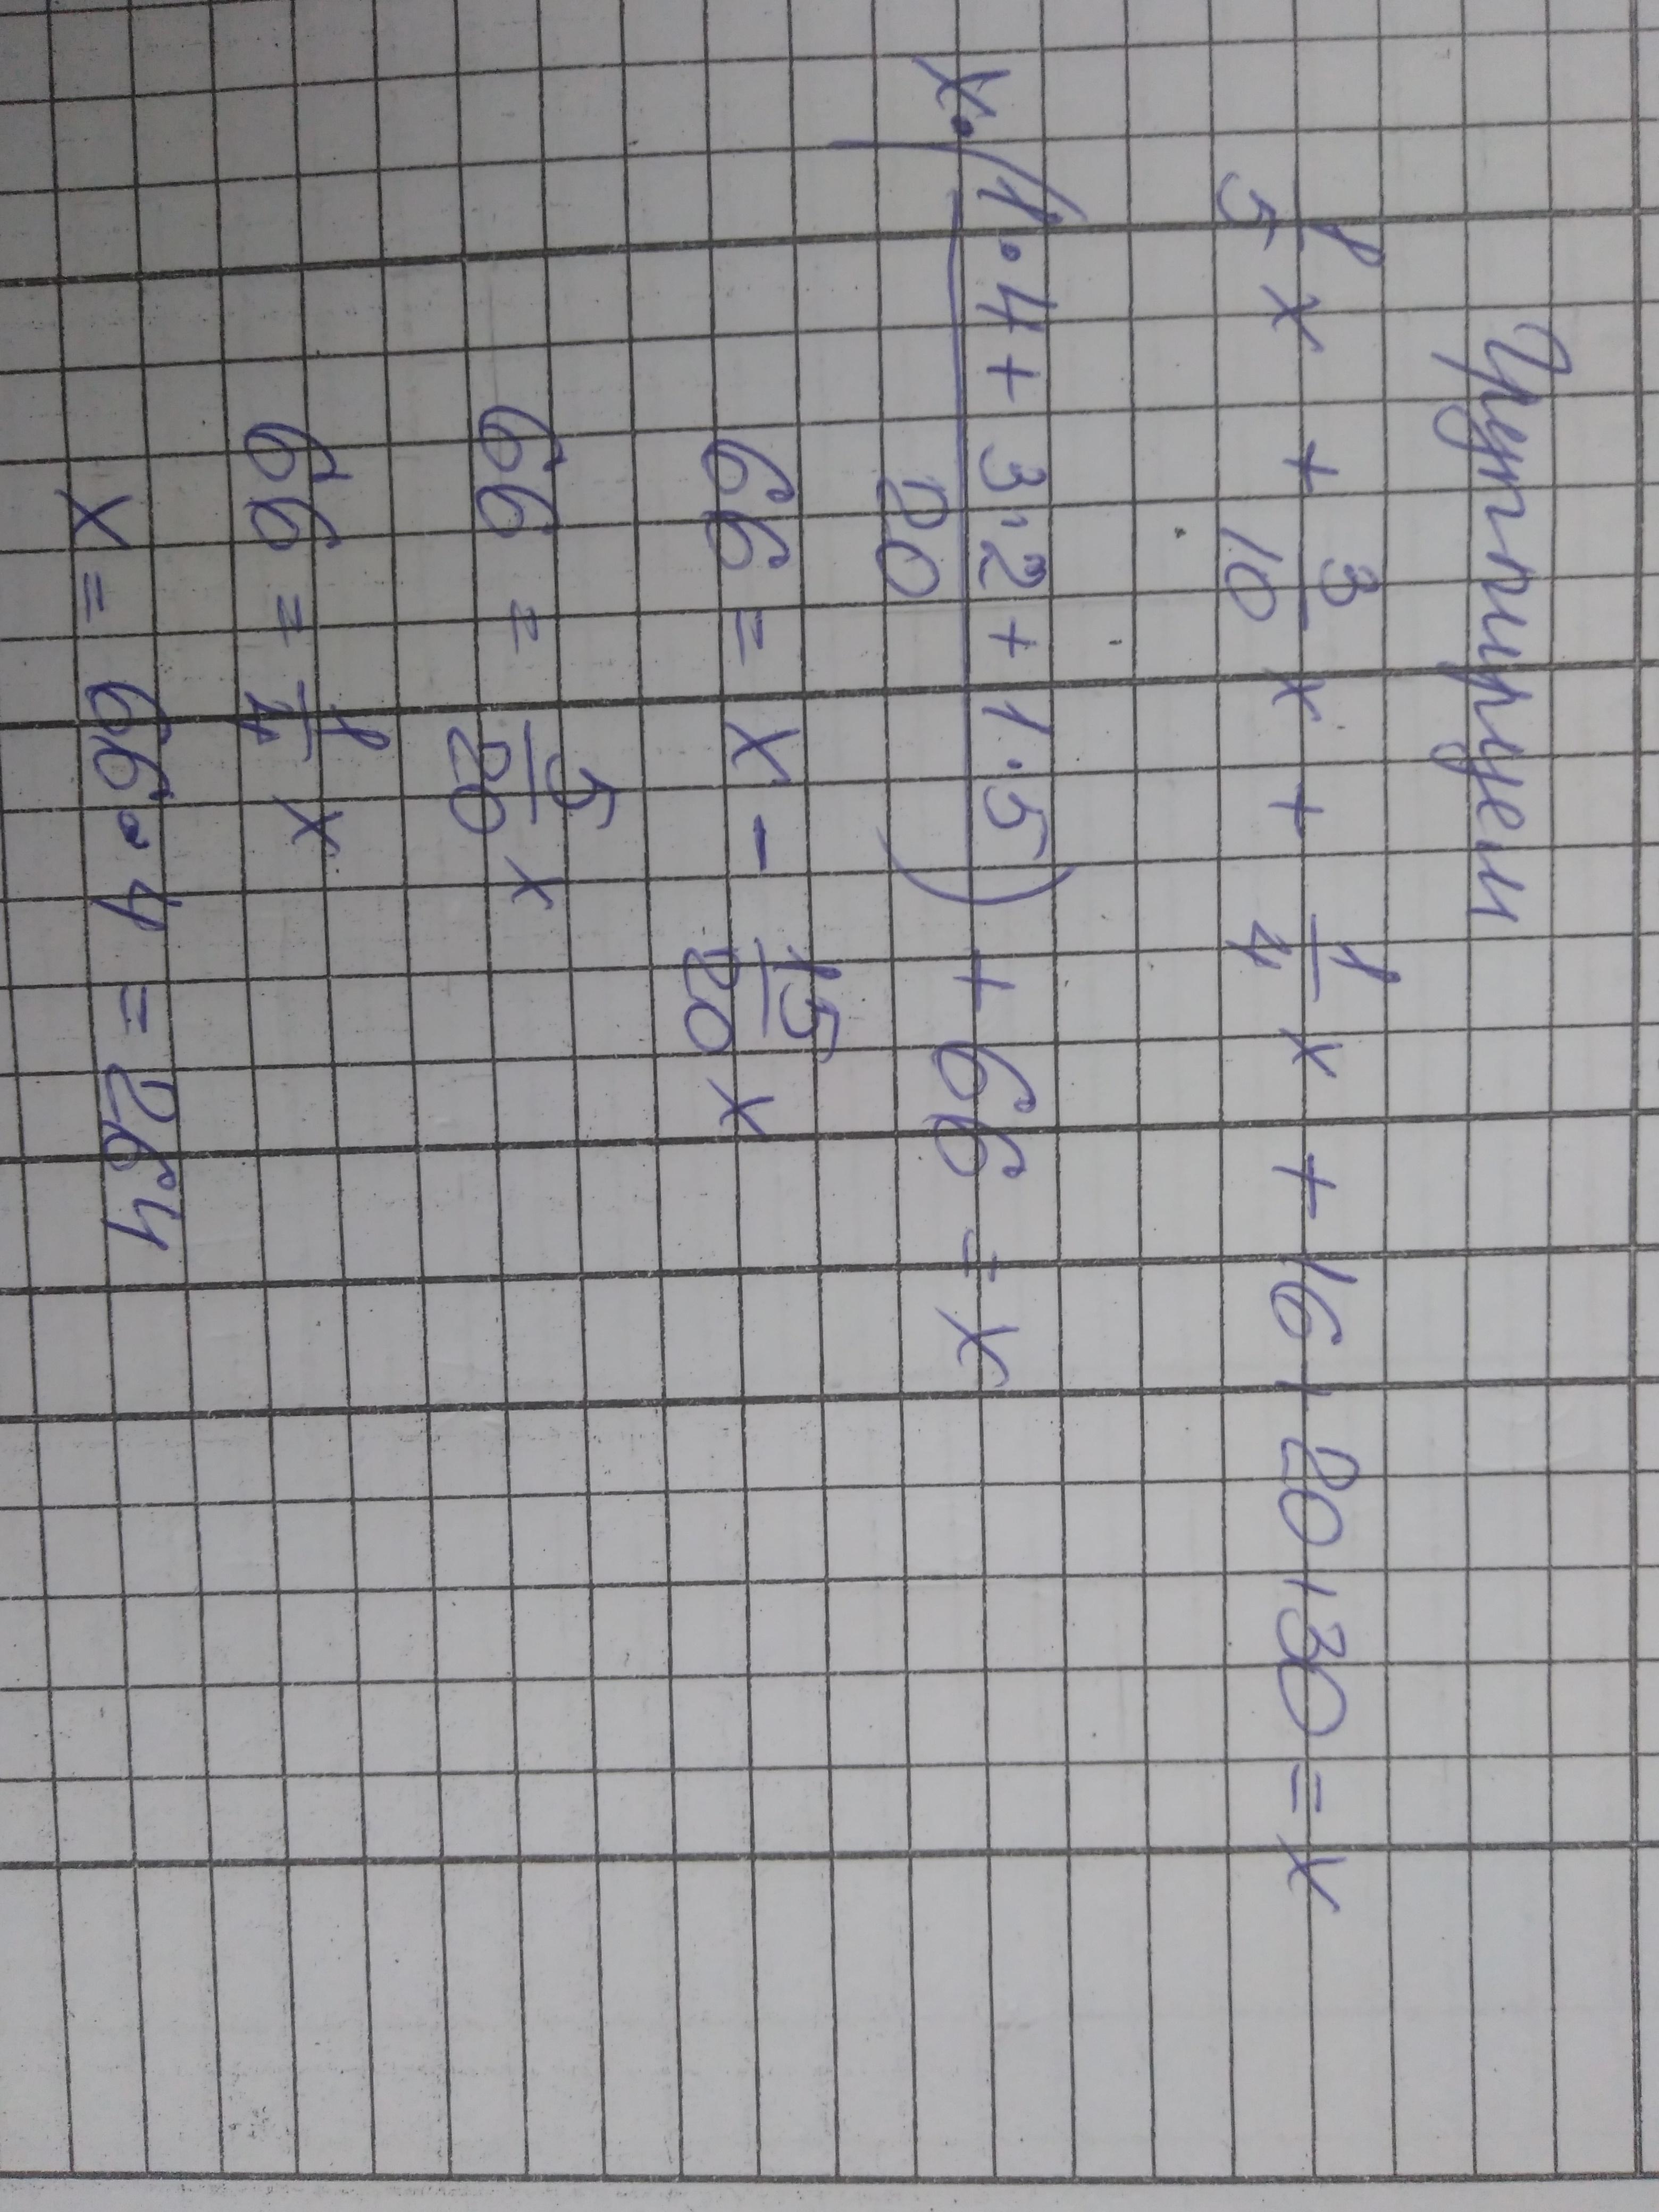 Групперуем
1/5 x + 3/10 x + 1/4 x + 16 + 20 + 30 = x
x · (1·4 + 3·2 + 1·5 / 20) + 66 = x
66 = x - 15/20 x
66 = 5/20 x
66 = 1/4 x
x = 66 · 4 = 264